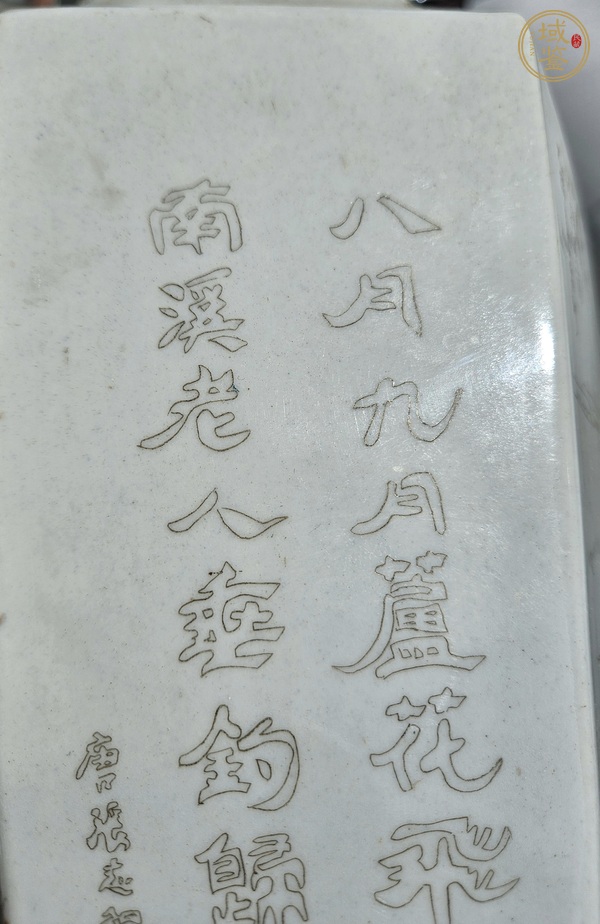 八月九月蘆花飛
南溪老人垂釣歸
唐張志和
域鉴